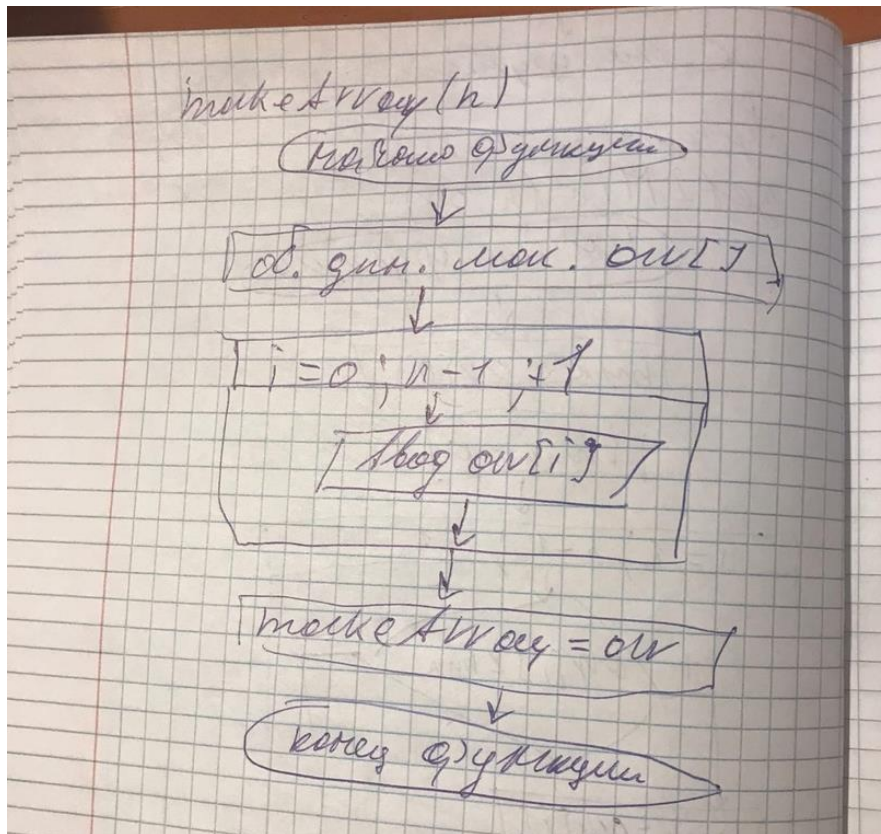 makeArray(n)
начало функции
об. дин. мас. arr[]
i=0; n-1; +1
Ввод arr[i]
makeArray = arr
конец функции